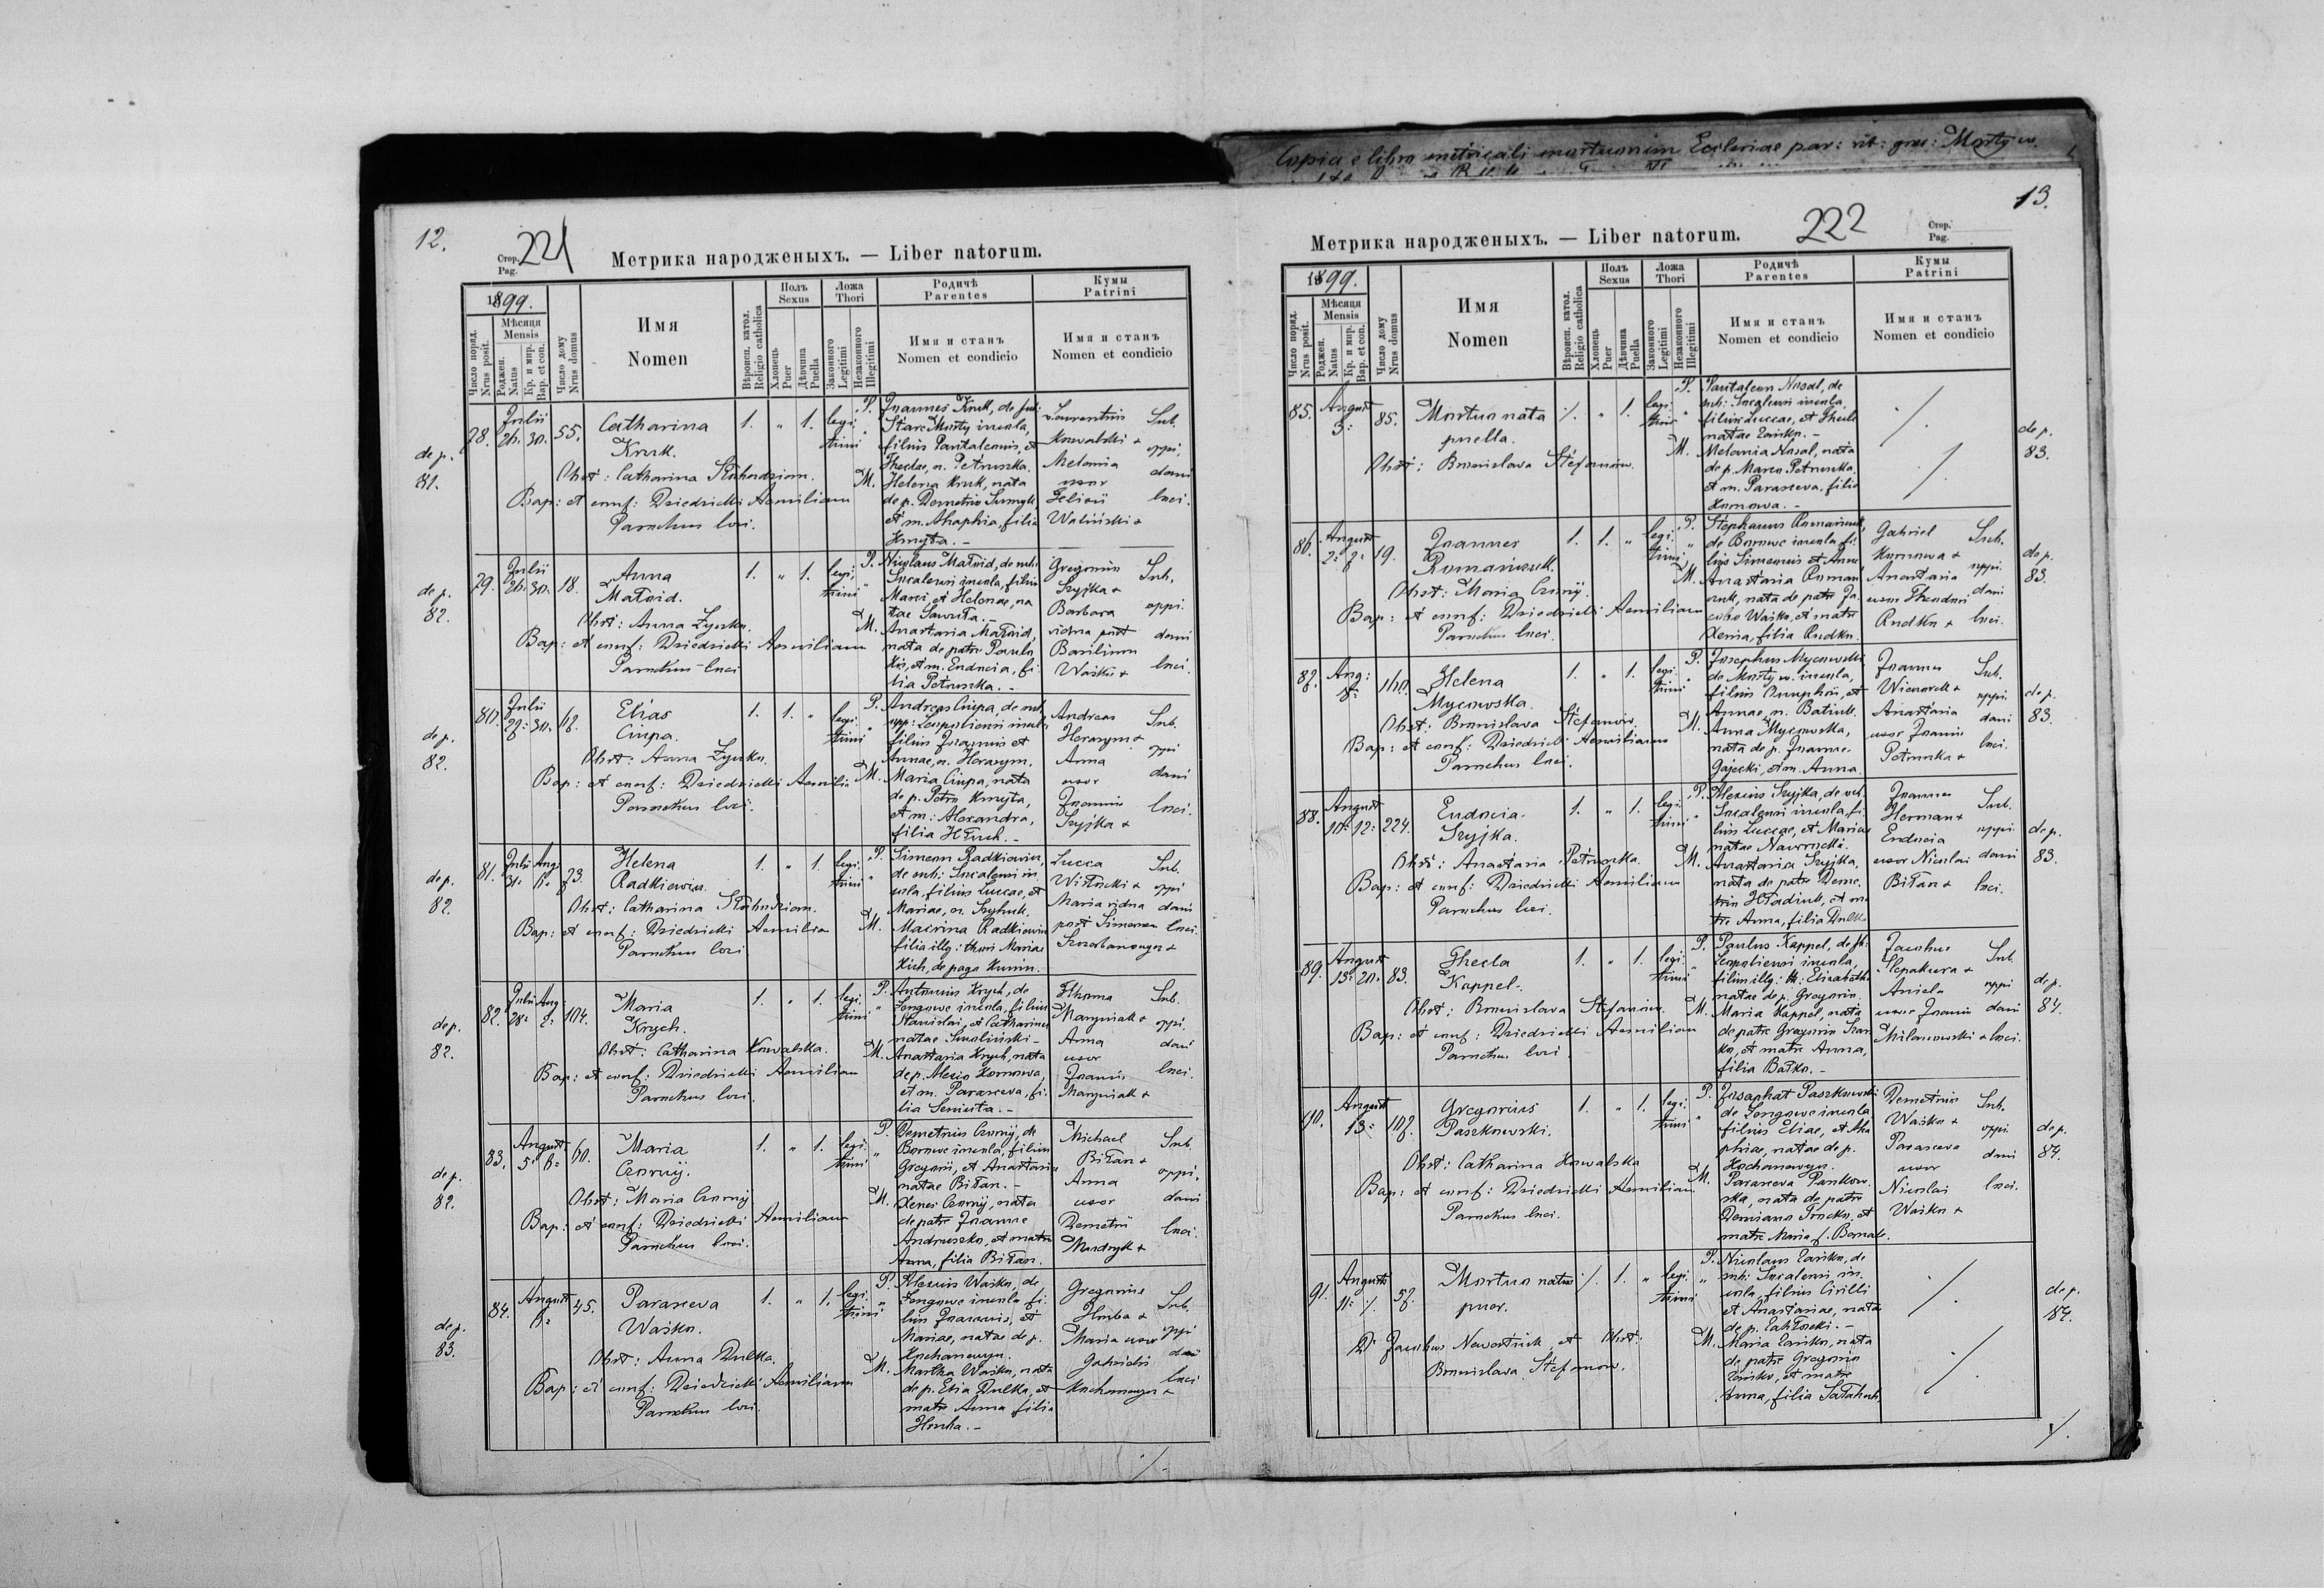 Copia e libro metricali mortuorum Ecclesiae par: rit: graec: Mosty w.
12.
Стор.
Pag.
221
Метрика народженыхъ. — Liber natorum.
1899.
Число поряд.
Nrus posit.
Мѣсяця
Mensis
Роджен.
Natus
Кр. и мир.
Bap. et con.
Число дому
Nrus domus
Имя
Nomen
Вѣроисп. катол.
Religio catholica
Полъ
Sexus
Хлопець
Puer
Дѣвчина
Puella
Ложа
Thori
Законного
Legitimi
Незаконного
Illegitimi
Родичѣ
Parentes
Имя и станъ
Nomen et condicio
Кумы
Patrini
Имя и станъ
Nomen et condicio
de p.
81.
78.
Julii
26. 30.
55.
Catharina
Kruk.
1. „ 1.
legi
timi
Bap: et conf: Dziedzicki Aemilian
Parochus loci.
P. Joannes Kruk, de sub:
Stare Mosty incola,
filius Pantaleonis, et
Theclae, n. Petruszka.
M. Helena Kruk, nata
de p. Demetrio Sumyk
et m. Ahaphia, filia
Kmyta. –
Laurentius
Kowalski +
Melania
uxor
Felicii
Waliński +
Sub.
oppi,
dani
loci.
de p.
82.
79.
Julii
26. 30.
18.
Anna
Matwid.
1. „ 1.
legi,
timi
Obst: Anna Zyszko.
Bap: et conf: Dziedzicki Aemilian
Parochus loci
P. Nicolaus Matwid, de sub:
Socalensi incola, filius
Marci, et Helenae, na
tae Sawuła. –
M. Anastasia Matwid,
nata de patre Paulo
Kis, et m. Eudocia, fi
lia Petruszka. –
Gregorius
Szyjka +
Barbara
vidua post
Basilium
Waśko +
Sub.
oppi
dani
loci.
de p.
82.
80.
Julii
27. 30.
Elias
Ciupa.
1. 1. „
legi.
timi
Obst: Anna Zyszko.
Bap: et conf: Dziedzicki Aemilia
Parochus loci.
P. Andreas Ciupa, de sub.
opp: Leopoliensi incola
filius Joannis et
Annae, n. Herasym.
M. Maria Ciupa, nata
de p. Petro Kmyta,
et m: Alexandra,
filia Hłuch. –
Andreas
Herasym +
Anna
uxor
Joannis
Szyjka +
Sub.
oppi
dani
loci.
de p.
82.
81.
Julii Aug
31. 6.
73.
Helena
Radkiewicz.
1. „ 1
legi.
timi
Bap: et conf: Dziedzicki Aemilia
Parochus loci
P. Simeon Radkiewicz,
de sub: Socalensi in
cola, filius Luccae, et
Mariae, n. Szyhuk.
M. Macrina Radkiewicz
filia illg: thori Mariae
Kich, de pago Kunin.
Lucca
Witocki +
Maria vidua
post Simeonem
Sub.
oppi
dani
loci.
de p.
82.
82.
Julii Aug
28. 7.
104.
Maria
Krych.
1. „ 1.
legi.
timi
Obst: Catharina Kowalska.
Bap: et conf: Dziedzicki Aemilian
Parochus loci.
P. Antonius Krych, de
Zongowe incola, filius
Stanislai, et Catharinae
natae Smoliński –
M. Anastasia Krych, nata
de p. Alexio Kornowa,
et m. Parasceva, fi-
lia Seniuta. –
Thoma
Maryniak +
Anna
uxor
Joannis
Maryniak +
Sub.
oppi.
dani
loci.
de p.
82.
83.
August
5. 6.
60.
Maria
Czornÿ.
1. „ 1.
legi.
timi
Obst: Maria Czornÿ
Bap: et conf: Dziedzicki Aemilian
Parochus loci.
P. Demetrius Czornÿ, de
Borowe incola, filius
Gregorii, et Anastasiae
natae Biłan. –
M. Xenes Czornÿ, nata
de patre Joanne
Andruszko, et matre
Anna, filia Biłan.
Michael
Biłan +
Anna
uxor
Demetrii
Mudryk +
Sub
oppi,
dani
loci.
de p.
83.
84.
August
6.
45.
Parasceva
Waśko.
1. „ 1.
legi.
timi
Obst: Anna Dulka.
Bap: et conf: Dziedzicki Aemilian
Parochus loci.
P. Alexius Waśko, de
Zongowe incola fi-
lius Joannis, et
Mariae, natae de p.
Kochanowyn.
M. Martha Waśko, nata
de p. Elia Dulka, et
matre Anna filia
Hruba. –
Gregorius
Hruba +
Maria uxor
Gabrielis
Kochanowyn +
Sub.
oppi
dani
loci
13.
Метрика народженыхъ. — Liber natorum.
222
Стор.
Pag.
1899.
Число поряд.
Nrus posit.
Мѣсяця
Mensis
Роджен.
Natus
Кр. и мир.
Bap. et con.
Число дому
Nrus domus
Имя
Nomen
Вѣроисп. катол.
Religio catholica
Полъ
Sexus
Хлопець
Puer
Дѣвчина
Puella
Ложа
Thori
Законного
Legitimi
Незаконного
Illegitimi
Родичѣ
Parentes
Имя и станъ
Nomen et condicio
Кумы
Patrini
Имя и станъ
Nomen et condicio
85.
August
3.
85.
Mortua nata
puella.
·/. „ 1.
legi
timi
Obst: Bronislava Stefanów.
P. Pantaleon Nosal, de
sub: Socalensi incola,
filius Luccae, et Theclae
natae Zańko. –
M. Melania Nosal, nata
de p. Marco Petruszka,
et m. Parasceva, filia
Kornowa. –
·/.
·/.
de p.
83.
86.
August
2. 7.
19.
Joannes
Romaniuk.
1. 1. „
legi.
timi
Obst: Maria Czornÿ.
Bap: et conf: Dziedzicki Aemilian
Parochus loci.
P. Stephanus Romaniuk,
de Borowe incola fi-
lius Simeonis et Annae
M. Anastasia Roman
iuk, nata de patre Ja-
cobo Waśko, et matre
Xenia, filia Rudko.
Gabriel
Kornowa +
Anastasia
uxor Theodori
Rudko +
Sub.
oppi.
dani
loci.
de p.
83.
87.
Aug:
8.
140.
Helena
Mycowska.
1. „ 1.
legi.
timi
Obst: Bronislava Stefanów.
Bap: et conf: Dziedzicki Aemilianus
Parochus loci.
P. Josephus Mycowski
de Mosty w. incola,
filius Onuphrii, et
Annae, n. Batiuk.
M. Anna Mycowska,
nata de p. Joanne
Gajecki, et m. Anna.
Joannes
Anastasia
uxor Joannis
Petruszka +
Sub.
oppi.
dani
loci.
de p.
83.
88.
August
10. 12.
224.
Eudocia
Szyjka.
1. „ 1.
legi.
timi
Obst: Anastasia Petruszka.
Bap: et conf: Dziedzicki Aemilian
Parochus loci.
P. Alexius Szyjka, de sub.
Socalensi incola, fi-
lius Luccae, et Mariae
natae Nawrocki.
M. Anastasia Szyjka,
nata de patre Deme-
trio Hładiuk, et ma
tre Anna, filia Dulka
Joannes
Herman +
Eudocia
uxor Nicolai
Biłan +
Sub.
oppi
dani
loci.
de p.
83.
89.
August
13. 20.
83.
Thecla
Kappel.
1. „ 1.
legi.
timi
Obst: Bronislava Stefanów.
Bap: et conf: Dziedzicki Aemilian
Parochus loci.
P. Paulus Kappel, de sb:
Leopoliensi incola,
filius illg: th: Elisabeth
natae de p. Gregorio.
M. Maria Kappel, nata
de patre Gregorio Szan
ko, et matre Anna,
filia Bałko. –
Jacobus
Slepakura +
Aniela
uxor Joannis
Milanowski +
Sub.
oppi
dani
loci.
de p.
84.
90.
August
13.
107.
Gregorius
Paszkowski.
1. „ 1.
legi.
timi
Obst: Catharina Kowalska
Bap: et conf: Dziedzicki Aemilian
Parochus loci.
P. Josaphat Paszkowski
de Zongowe incola
filius Eliae, et Aha
phiae, natae de p.
Kochanowyn.
M. Parasceva Paszkow
ska, nata de patre
Demiano Trocko, et
matre Maria f. Bernade.
Demetrius
Waśko +
Parasceva
uxor
Nicolai
Waśko +
Sub.
oppi
dani
loci.
de p.
84.
91.
August
11. ·/.
57.
Mortuo natus
puer.
·/. 1. „
legi
timi
Dr Jacobus Newestiuk et Obst:
Bronislava Stefanow.
P. Nicolaus Zańko, de
sub: Socalensi in-
cola, filius Cirilli
et Anastasiae, nata
de p. Zahłocki. –
M. Maria Zańko, nata
de patre Gregorio
Zańko, et matre
Anna, filia Sałahub.
·/.
·/.
de p.
84.
·/.